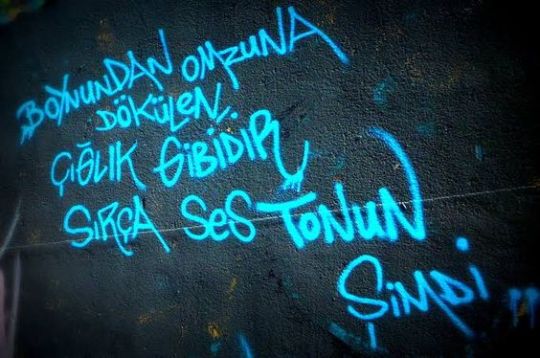 "BOYNUNDAN OMZUNA
DÖKÜLEN,
ÇIĞLIK GİBİDİR
SIRÇA SES TONUN
ŞİMDİ."